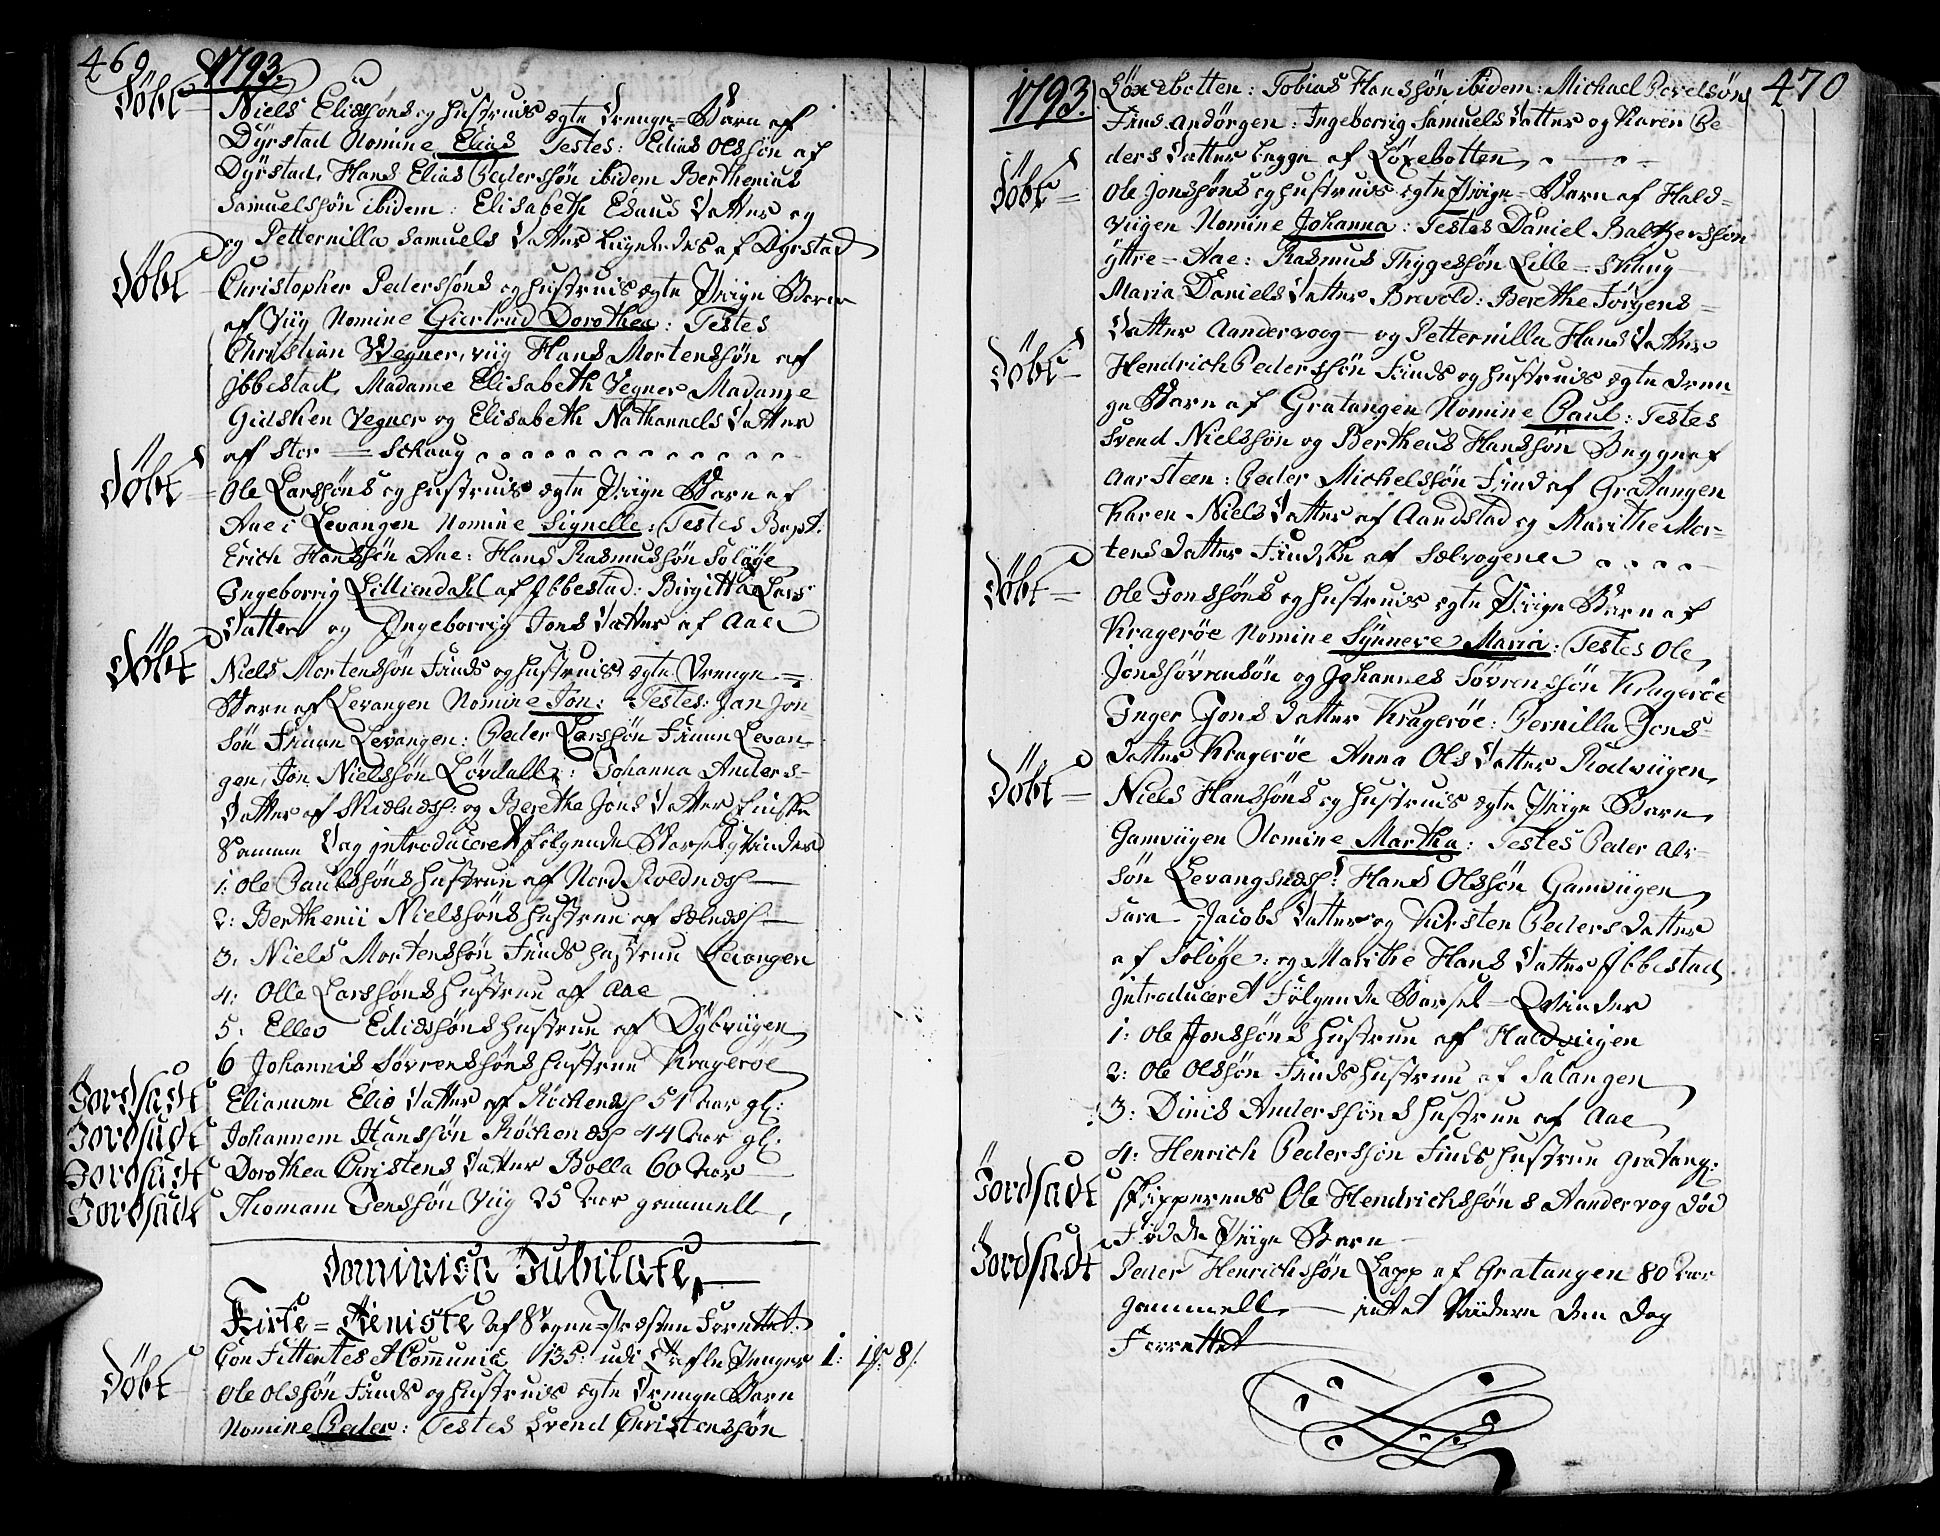 469 1793.
Døbt Niels Eliesøns og hustrues ægte Drenge-Barn af
Dyrstad Nomine Elias Testes: Elias Olssøn af
Dyrstad, Hans Elias Pederssøn ibidem Berthenius
Samuelssøn ibidem: Elisabeth Esaus Datter og
og Petternilla Samuels Datter Luynderdes af Dyrstad
Døbt Christopher Pederssøns og hustrues ægte Piige Barn
af Viig Nomine Giertrud Dorothea: Testes
Christian Wegner, viig Hans Mortenssøn af
Jbbestad, Madame Elisabeth Vegner Madame
Gidsken Vegner og Elisabeth Nathanaels Datter
af Stor = Schaug
Døbt Ole Larssøns og hustrues ægte Piige Barn af
Aae i Levangen Nomine Signelle: Testes Bapt:
Erich Hanssøn Aae: Hans Rasmussøn Soløye
Ingeborrig Lilliendahl af Jbbestad: Birgitta Lars
Datter og Ingeborrig Jons Datter af Aae
Døbt Niels Mortenssøn Finds og hustrues ægte Drenge =
Barn af Levangen Nomine Jon: Testes: Jan Jon-
søn Finn Levangen: Peder Larssøn Finn Levan-
gen, Jon Nielssøn Løvdall: Johanna Anders-
Datter af og Berethe Jons Datter Finske
Samme Dag introduceret følgende Barselqvinder
1: Ole Paulssøns hustrue af Nord Roldnæs
2: Berthenii Nielssøns hustrue af
3, Niels Mortenssøn Finds hustrue Levangen
4: Olle Larssøns hustrue af Aae
5: Ellev Eliessøns hustrue af Dybviigen
6 Johannis Søvrenssøns hustrue Kragerøe
Jordsadt Elianum Elis Datter af Røckenæs 51 aar gl:
Jordsadt Johannem Hanssøn Røckenæs 44 aar gl:
Jordsadt Dorothea Christens Datter Bolla 60 aar
Jordsadt Thomam Jenssøn Viig 25 aar gammell,
Dominica Jubilate,
Kirke = Tieniste af Sogne-Præsten Forrettet:
Confittentes et Communic 135: udi Tafle Penger 1: 1ß: 8/:
Døbt Ole Olssøn Finds og hustrues ægte Drenge Barn
Nomine Peder: Testes Svend Christenssøn
1793. 470
Løxebotten: Tobias Hanssøn ibidem: Michael Povelsøn
Finds Andørgen: Ingeborrig Samuels Datter og Karen Pe-
ders Datter begge af Løxebotten
Døbt Ole Jonssøns og hustrues ægte Piige-Barn af Hald-
viigen Nomine Johanna: Testes Daniel Baltzerssøn
yttre-Aae: Rasmus Thygessøn Lille-Skaug
Maria Daniels Datter Brevold: Berethe Jørgens-
Datter Aandervoog - og Petternilla Hans Datter
Døbt Hendrich Pederssøn Finds og hustrues ægte Dren-
ge Barn af Gratangen Nomine Paul: Testes
Svend Nielssøn og Bertheus Hanssøn Begge af
Aarsteen: Peder Michelssøn Find af Gratangen
Karen Niels Datter af Aandstad og Marithe Mor-
tens Datter Findsk af Sælvogene
Døbt Ole Jonssøns og hustrues ægte Piige Barn af
Kragerøe Nomine Synneve Maria: Testes Ole,
Jonssøvrensøn og Johannes Søvrenssøn Kragerøe
Inger Jons Datter Kragerøe: Pernilla Jons-
Datter Kragerøe Anna Ols Datter Rodviigen
Døbt Niels Hanssøns og hustrues ægte Piige Barn,
Gamviigen Nomine Martha: Testes Peder Ols-
søn Levangsnæs: Hans Olssøn Gamviigen,
Sara Jacobs Datter og Kirsten Peders Datter
af Soløye: og Marithe Hans Datter Jbbestad
Introduceret Følgende Barsel-Qvinder
1: Ole Jonssøns hustrue af Haldviigen
2: Ole Olssøn Finds hustrue af Salangen
3: Dinis Anderssøns hustrue af Aae
4: Henrich Pederssøn Finds hustrue Gratang:
Jordsadt Skipperens Ole Hendrichssøns Aandervog død
Fødde Piige Barn
Jordsadt Peder Henrichssøn Lapp af Gratangen 80 aar
gammell, - intet viidere den Dag
Forrettet